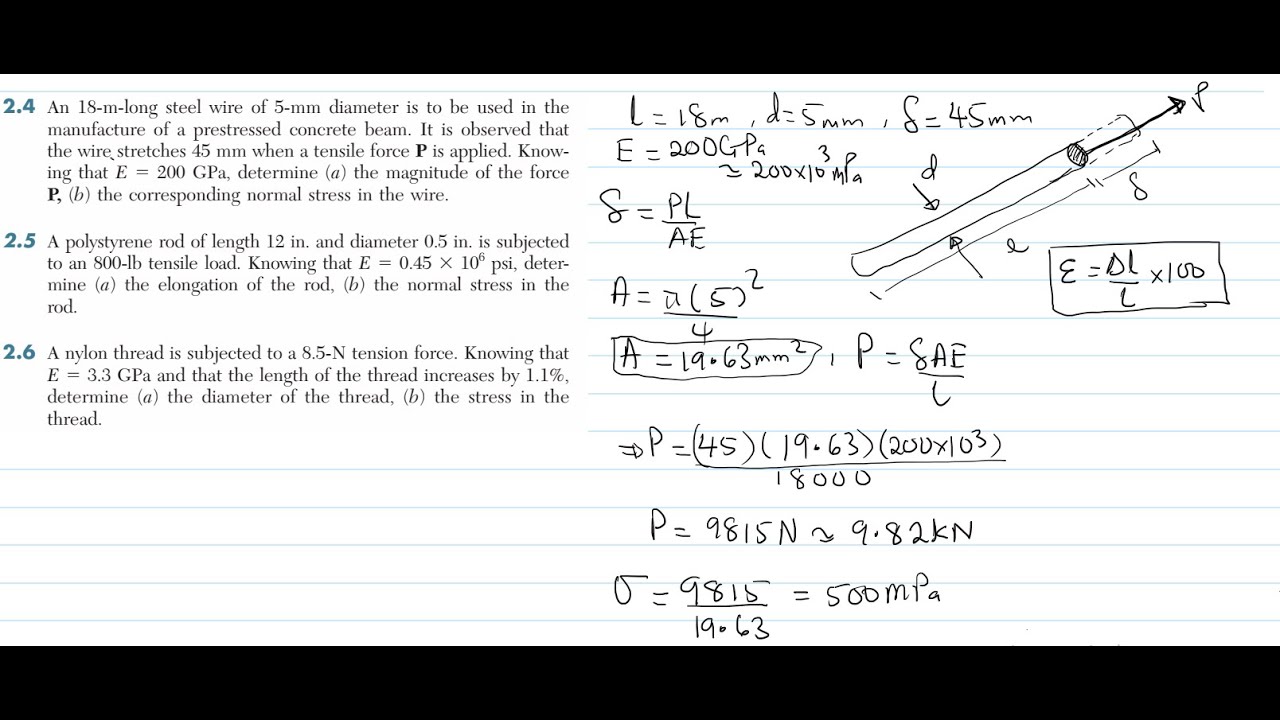 2.4 An 18-m-long steel wire of 5-mm diameter is to be used in the
manufacture of a prestressed concrete beam. It is observed that
the wire stretches 45 mm when a tensile force P is applied. Know-
ing that E = 200 GPa, determine (a) the magnitude of the force
P, (b) the corresponding normal stress in the wire.
2.5 A polystyrene rod of length 12 in. and diameter 0.5 in. is subjected
to an 800-lb tensile load. Knowing that E = 0.45 × 10⁶ psi, deter-
mine (a) the elongation of the rod, (b) the normal stress in the
rod.
2.6 A nylon thread is subjected to a 8.5-N tension force. Knowing that
E = 3.3 GPa and that the length of the thread increases by 1.1%,
determine (a) the diameter of the thread, (b) the stress in the
thread.
l = 18m, d=5mm, δ=45mm
E = 200GPa
≃ 200×10³ mPa
δ = PL/AE
A = π(5)²/4
A = 19.63mm², P = δAE/L
⇒ P = (45)(19.63)(200×10³)/18000
P = 9815N ≃ 9.82KN
σ = 9815/19.63 = 500mPa
P
d
δ
l
ε = Δl/l ×100